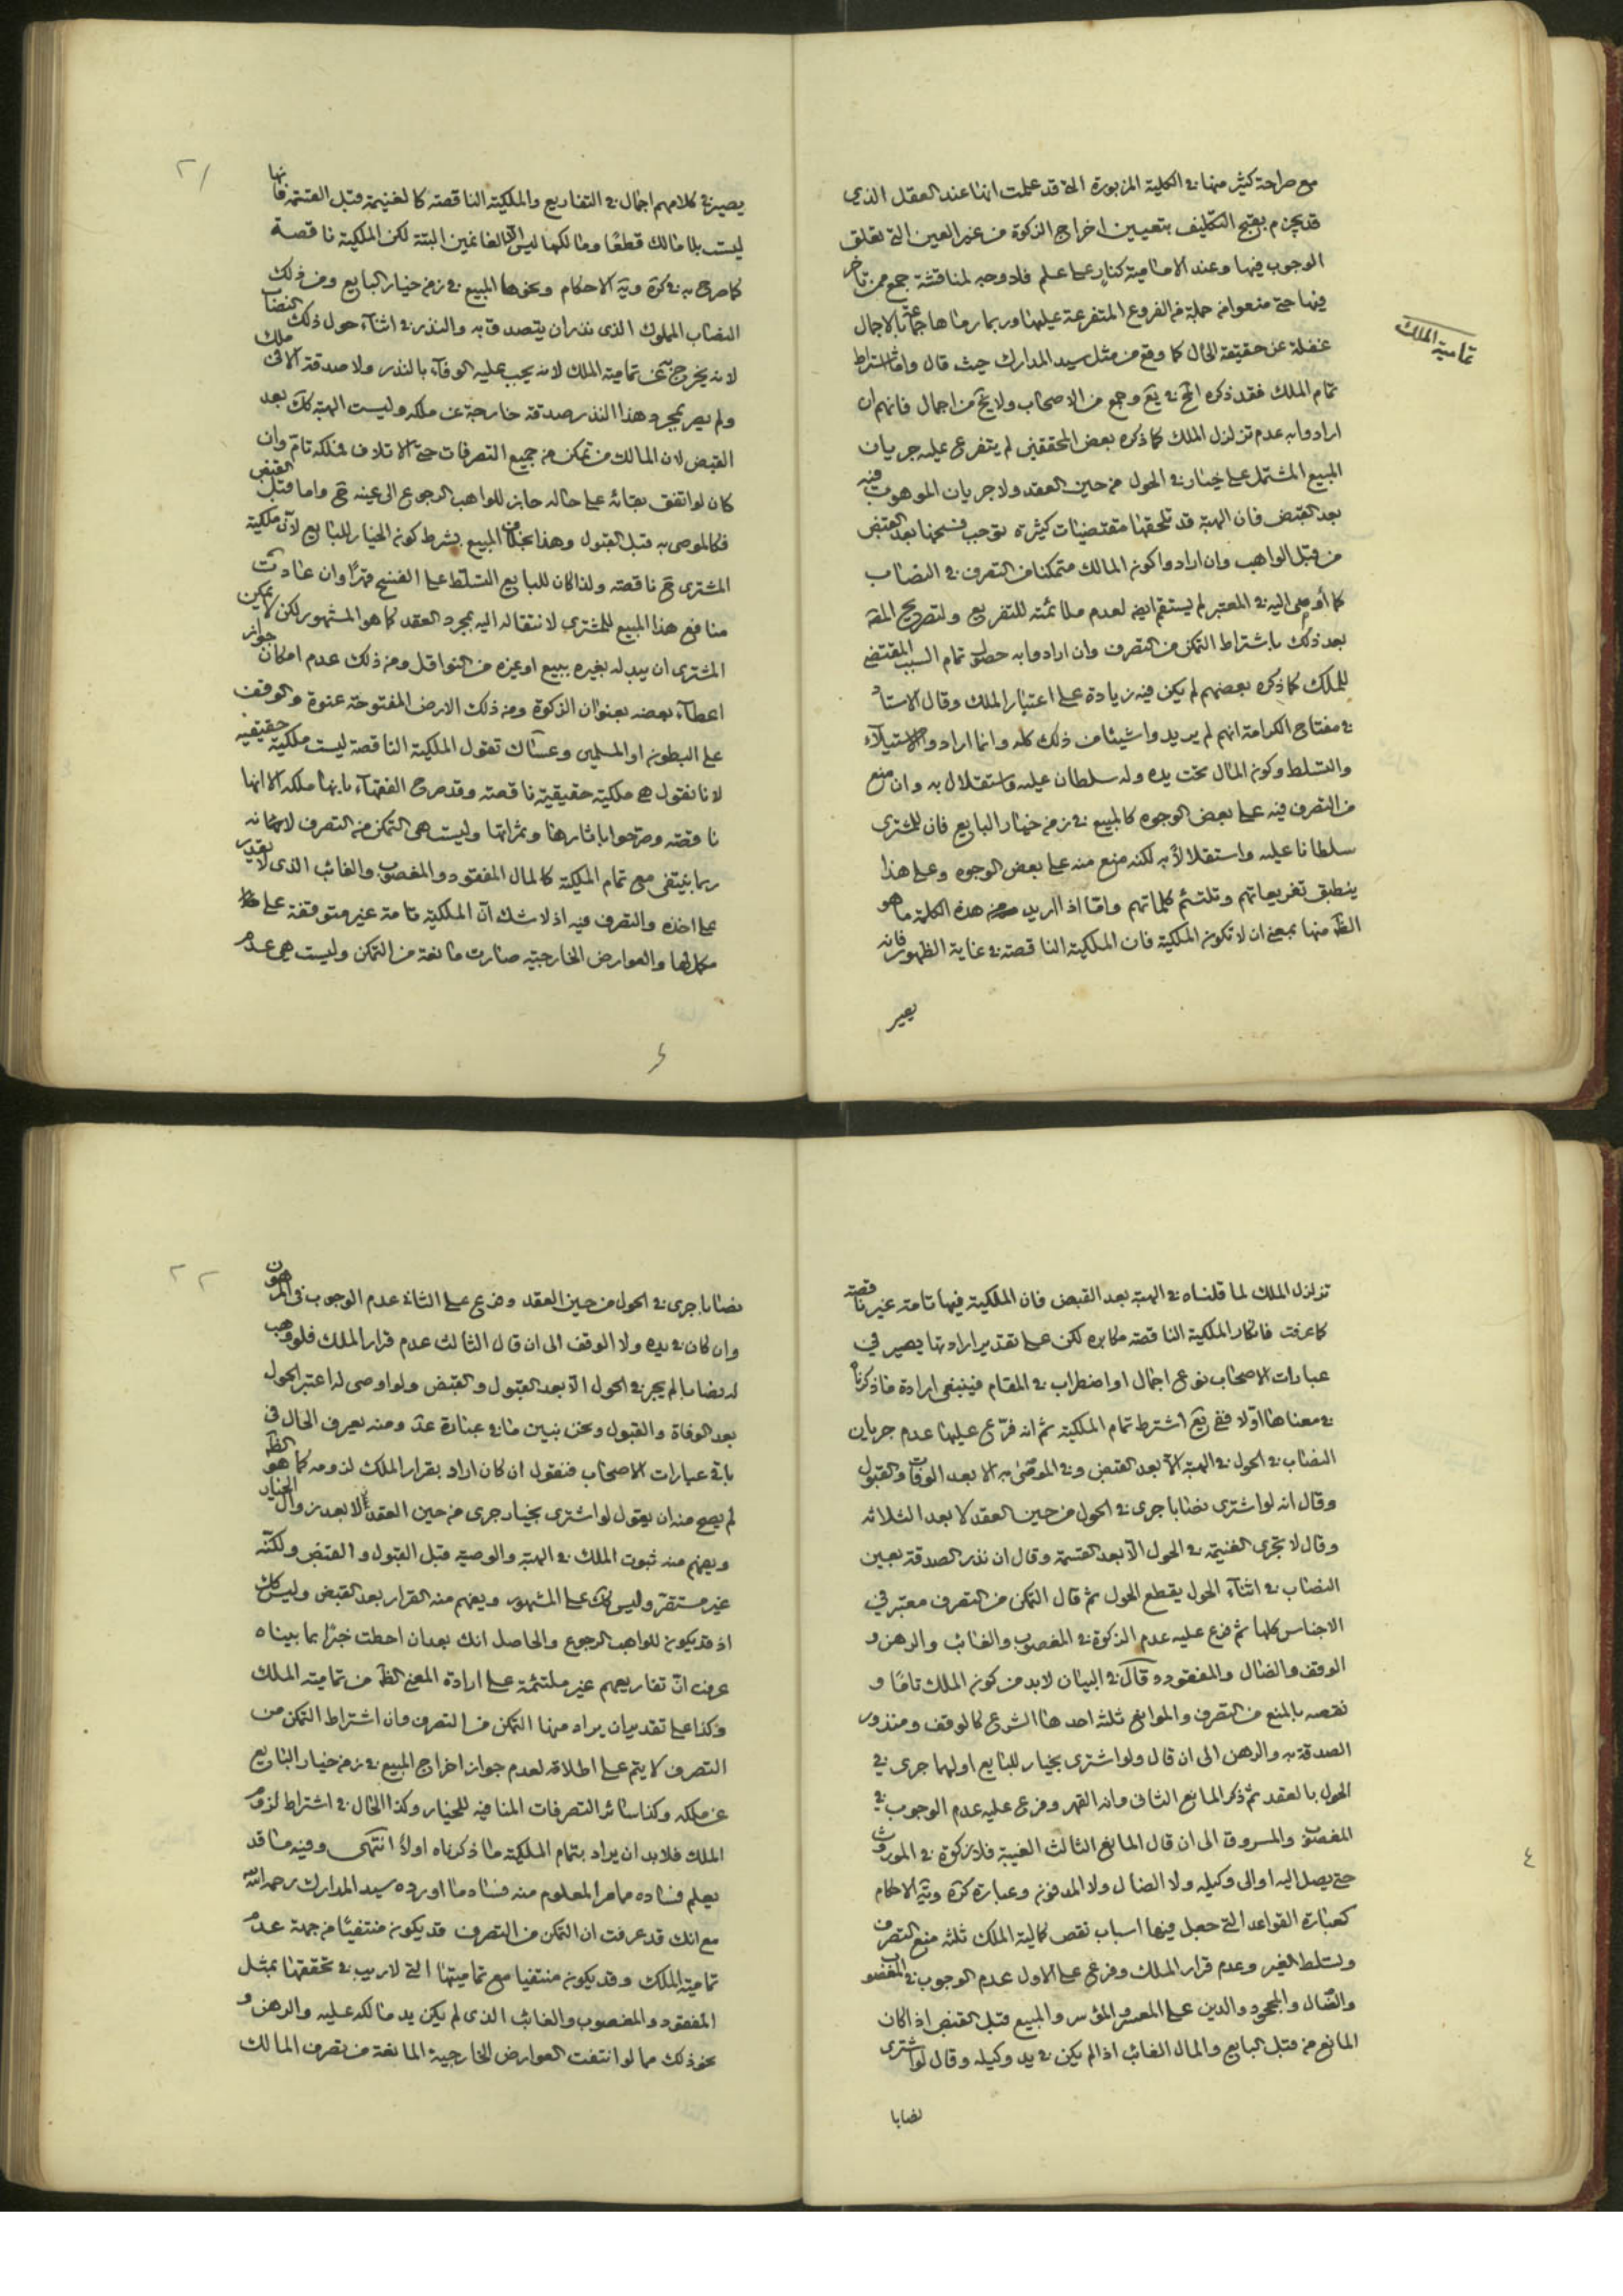 مع صراحة كثير منها في الكلية المزبورة التي قد علمت انها عند العقل الذي
قد يجزم بقبح التكليف بتعيين اخراج الزكوة من غير العين التي تعلق
الوجوب فيها وعند الامامية كنار على علم فلا وجه لمناقشة جمع ممن تاخر
فيها حتى منعوا من جملة من الفروع المتفرعة عليها وربما رماها جماعة بالاجمال
غفلة عن حقيقة الحال كما وقع من مثل سيد المدارك حيث قال واما اشتراط
تمام الملك فقد ذكره المح في يع وجمع من الاصحاب ولا يخ من اجمال فانهم ان
ارادوا به عدم تزلزل الملك كما ذكره بعض المحققين لم يتفرع عليه جريان
المبيع المشتمل على خيار في الحول من حين العقد ولا جريان الموهوب فيه
بعد القبض فان الهبة قد تلحقها مقتضيات كثيرة توجب فسخها بعد القبض
من قبل الواهب وان ارادوا كون المالك متمكنا من التصرف في النصاب
كما أومى اليه في المعتبر لم يستقم ايضا لعدم ملائمته للتفريع ولتصريح المصة
بعد ذلك باشتراط التمكن من التصرف وان ارادوا به حصول تمام السبب المقتضي
للملك كما ذكره بعضهم لم يكن فيه زيادة على اعتبار الملك وقال الاستاد
في مفتاح الكرامة انهم لم يريدوا شيئا من ذلك كله وانما ارادوا الاستيلاء
والتسلط وكون المال تحت يده وله سلطان عليه واستقلال به وان منع
من التصرف فيه على بعض الوجوه كالمبيع في زمن خيار البايع فان للمشتري
سلطانا عليه واستقلالا به لكنه منع منه على بعض الوجوه وعلى هذا
ينطبق تفريعاتهم وتلتئم كلماتهم واما اذا اريد من هذه الكلمة ما هو
الظ منها بمعنى ان لا تكون الملكية فان الملكية الناقصة في غاية الظهور فانه
يصير
تمامية الملك
٢١
يصير في كلامهم اجمال في التفاريع والملكية الناقصة كالغنيمة قبل القسمة فانها
ليست بلا مالك قطعا ومالكها ليس الا الغانمين البتة لكن الملكية ناقصة
كما صرح به في كرة ويه الاحكام ونحوها المبيع في زمن خيار البايع ومن ذلك
النصاب المملوك الذي نذر ان يتصدق به والنذر في اثناء حول ذلك النصاب
لانه يخرج عن تمامية الملك لانه يجب عليه الوفاء بالنذر ولا صدقة الا في ملك
ولم يصر بمجرد هذا النذر صدقة خارجة عن ملكه وليست الهبة كك بعد
القبض لان المالك متمكن من جميع التصرفات حتى الاتلاف فملكه تام وان
كان لو اتفق بقائه على حاله جاز للواهب الرجوع الى عينه ح واما قبل القبض
فكالموصى به قبل القبول وهذا بخلاف المبيع بشرط كون الخيار للبايع لان ملكية
المشتري ح ناقصة ولذا كان للبايع التسلط على الفسخ قهرا وان عادت
منافع هذا المبيع للمشتري لانتقاله اليه بمجرد العقد كما هو المشهور لكن لا يمكن
المشتري ان يبدله بغيره ببيع او غيره من النواقل ومن ذلك عدم امكان جواز
اعطاء بعضه بعنوان الزكوة ومن ذلك الارض المفتوحة عنوة والوقف
على البطون او المسلمين وعساك تقول الملكية الناقصة ليست ملكية حقيقية
لانا نقول هي ملكية حقيقية ناقصة وقد صرح الفقهاء بانها ملكه الا انها
ناقصة وصرحوا باثارها وثمراتها وليست هي التمكن من التصرف لانه
ربما ينتفى مع تمام الملكية كالمال المفقود والمغصوب والغائب الذي لا يقدر
على اخذه والتصرف فيه اذ لا شك ان الملكية تامة غير متوقفة على
مكملها والعوارض الخارجية صارت مانعة من التمكن وليست هي عدم
٤
تزلزل الملك لما قلناه في الهبة بعد القبض فان الملكية فيها تامة غير ناقصة
كما عرفت فانكار الملكية الناقصة مكابره لكن على تقدير ارادتها يصير في
عبارات الاصحاب نوع اجمال او اضطراب في المقام فينبغي ارادة ما ذكرنا
في معناها اولا ففي يع اشترط تمام الملكية ثم انه فرع عليها عدم جريان
النصاب في الحول في الهبة الا بعد القبض وفي الموصى به الا بعد الوفات والقبول
وقال انه لو اشترى نصابا جرى في الحول من حين العقد لا بعد الثلاثه
وقال لا تجرى الغنيمة في الحول الا بعد القسمة وقال ان نذر الصدقة بعين
النصاب في اثناء الحول يقطع الحول ثم قال التمكن من التصرف معتبر في
الاجناس كلها ثم فرع عليه عدم الزكوة في المغصوب والغائب والرهن و
الوقف والضال والمفقود وقال في البيان لا بد من كون الملك تاما و
نقصه بالمنع من التصرف والموانع ثلثه احدها الشرع كالوقف ومنذور
الصدقة به والرهن الى ان قال ولو اشترى بخيار للبايع او لهما جرى في
الحول بالعقد ثم ذكر المانع الثاني وانه القهر وفرع عليه عدم الوجوب في
المغصوب والمسروق الى ان قال المانع الثالث الغيبة فلا زكوة في الموروث
حتى يصل اليه او الى وكيله ولا الضال ولا المدفون وعبارة كرة ويه الاحكام
كعبارة القواعد التي جعل فيها اسباب نقص كمالية الملك ثلثه منع التصرف
وتسلط الغير وعدم قرار الملك وفرع على الاول عدم الوجوب في المغصوب
والضال والمجحود والدين على المعسر والمؤسر والمبيع قبل القبض اذا كان
المانع من قبل البايع والمال الغائب اذا لم يكن في يد وكيله وقال لو اشترى
نصابا
٤
٢٢
نصابا جرى في الحول من حين العقد وفرع على الثاني عدم الوجوب في المرهون
وان كان في يده ولا الوقف الى ان قال الثالث عدم قرار الملك فلو وهب
له نصابا لم يجر في الحول الا بعد القبول والقبض ولو اوصى له اعتبر الحول
بعد الوفاة والقبول ونحن نبين ما في عبارة عد ومنه يعرف الحال في
باقي عبارات الاصحاب فنقول ان كان اراد بقرار الملك لزومه كما هو الظ
لم يصح منه ان يقول لو اشترى بخيار جرى من حين العقد الا بعد زوال الخيار
ويفهم منه ثبوت الملك في الهبة والوصية قبل القبول والقبض ولكنه
غير مستقر وليس كك على المشهور ويفهم منه القرار بعد القبض وليس كك
اذ قد يكون للواهب الرجوع والحاصل انك بعد ان احطت خبرا بما بيناه
عرفت ان تفاريعهم غير ملتئمة على ارادة المعنى الظ من تمامية الملك
وكذا على تقدير ان يراد منها التمكن من التصرف وان اشتراط التمكن من
التصرف لا يتم على اطلاقه لعدم جواز اخراج المبيع في زمن خيار البايع
عن ملكه وكذا سائر التصرفات المنافيه للخيار وكذا الحال في اشتراط لزوم
الملك فلا بد ان يراد بتمام الملكية ما ذكرناه اولا انتهى وفيه ما قد
يعلم فساده مما مر المعلوم منه فساد ما اورده سيد المدارك رحمه الله
مع انك قد عرفت ان التمكن من التصرف قد يكون منتفيا من جهة عدم
تمامية الملك وقد يكون منتفيا مع تماميتها التي لا ريب في تحققها بمثل
المفقود والمغصوب والغائب الذي لم يكن يد مالكه عليه والرهن و
نحو ذلك مما لو انتفت العوارض الخارجية المانعة من تصرف المالك